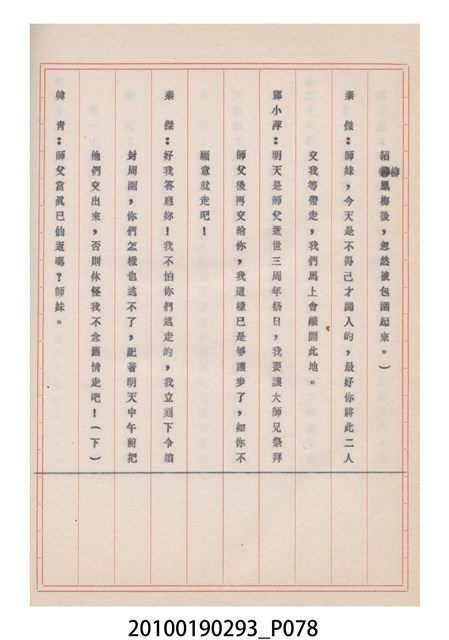 紹柳鳳梅後，忽然被包圍起來。）
秦　傑：師妹，今天是不得已才闖入的，最好你將此二人
交我等帶走，我們馬上會離開此地。
鄧小萍：明天是師父逝世三周年祭日，我要讓大師兄祭拜
師父後再交給你，我這樣已是够讓步了，如你不
願意就走吧！
秦　傑：好我答應妳！我不怕你們逃走的，我立刻下令續
封周圍，你們怎樣也逃不了，記著明天中午前把
他們交出來，否則休怪我不念舊情走吧！（下）
韓　青：師父當眞已仙逝嗎？師妹。
20100190293_P078